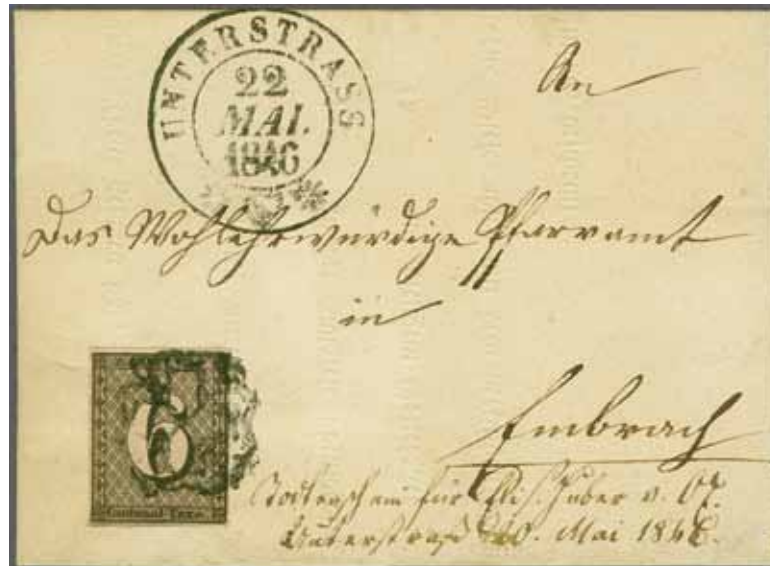 UNTERSTRASS
22
MAI.
1846
An
Das Wohlehrwürdige Pfarramt
in
Embrach
6
Cantonal-Taxe.
Todtenschein für Elis. Huber v.
Unterstrass Mai 1846.